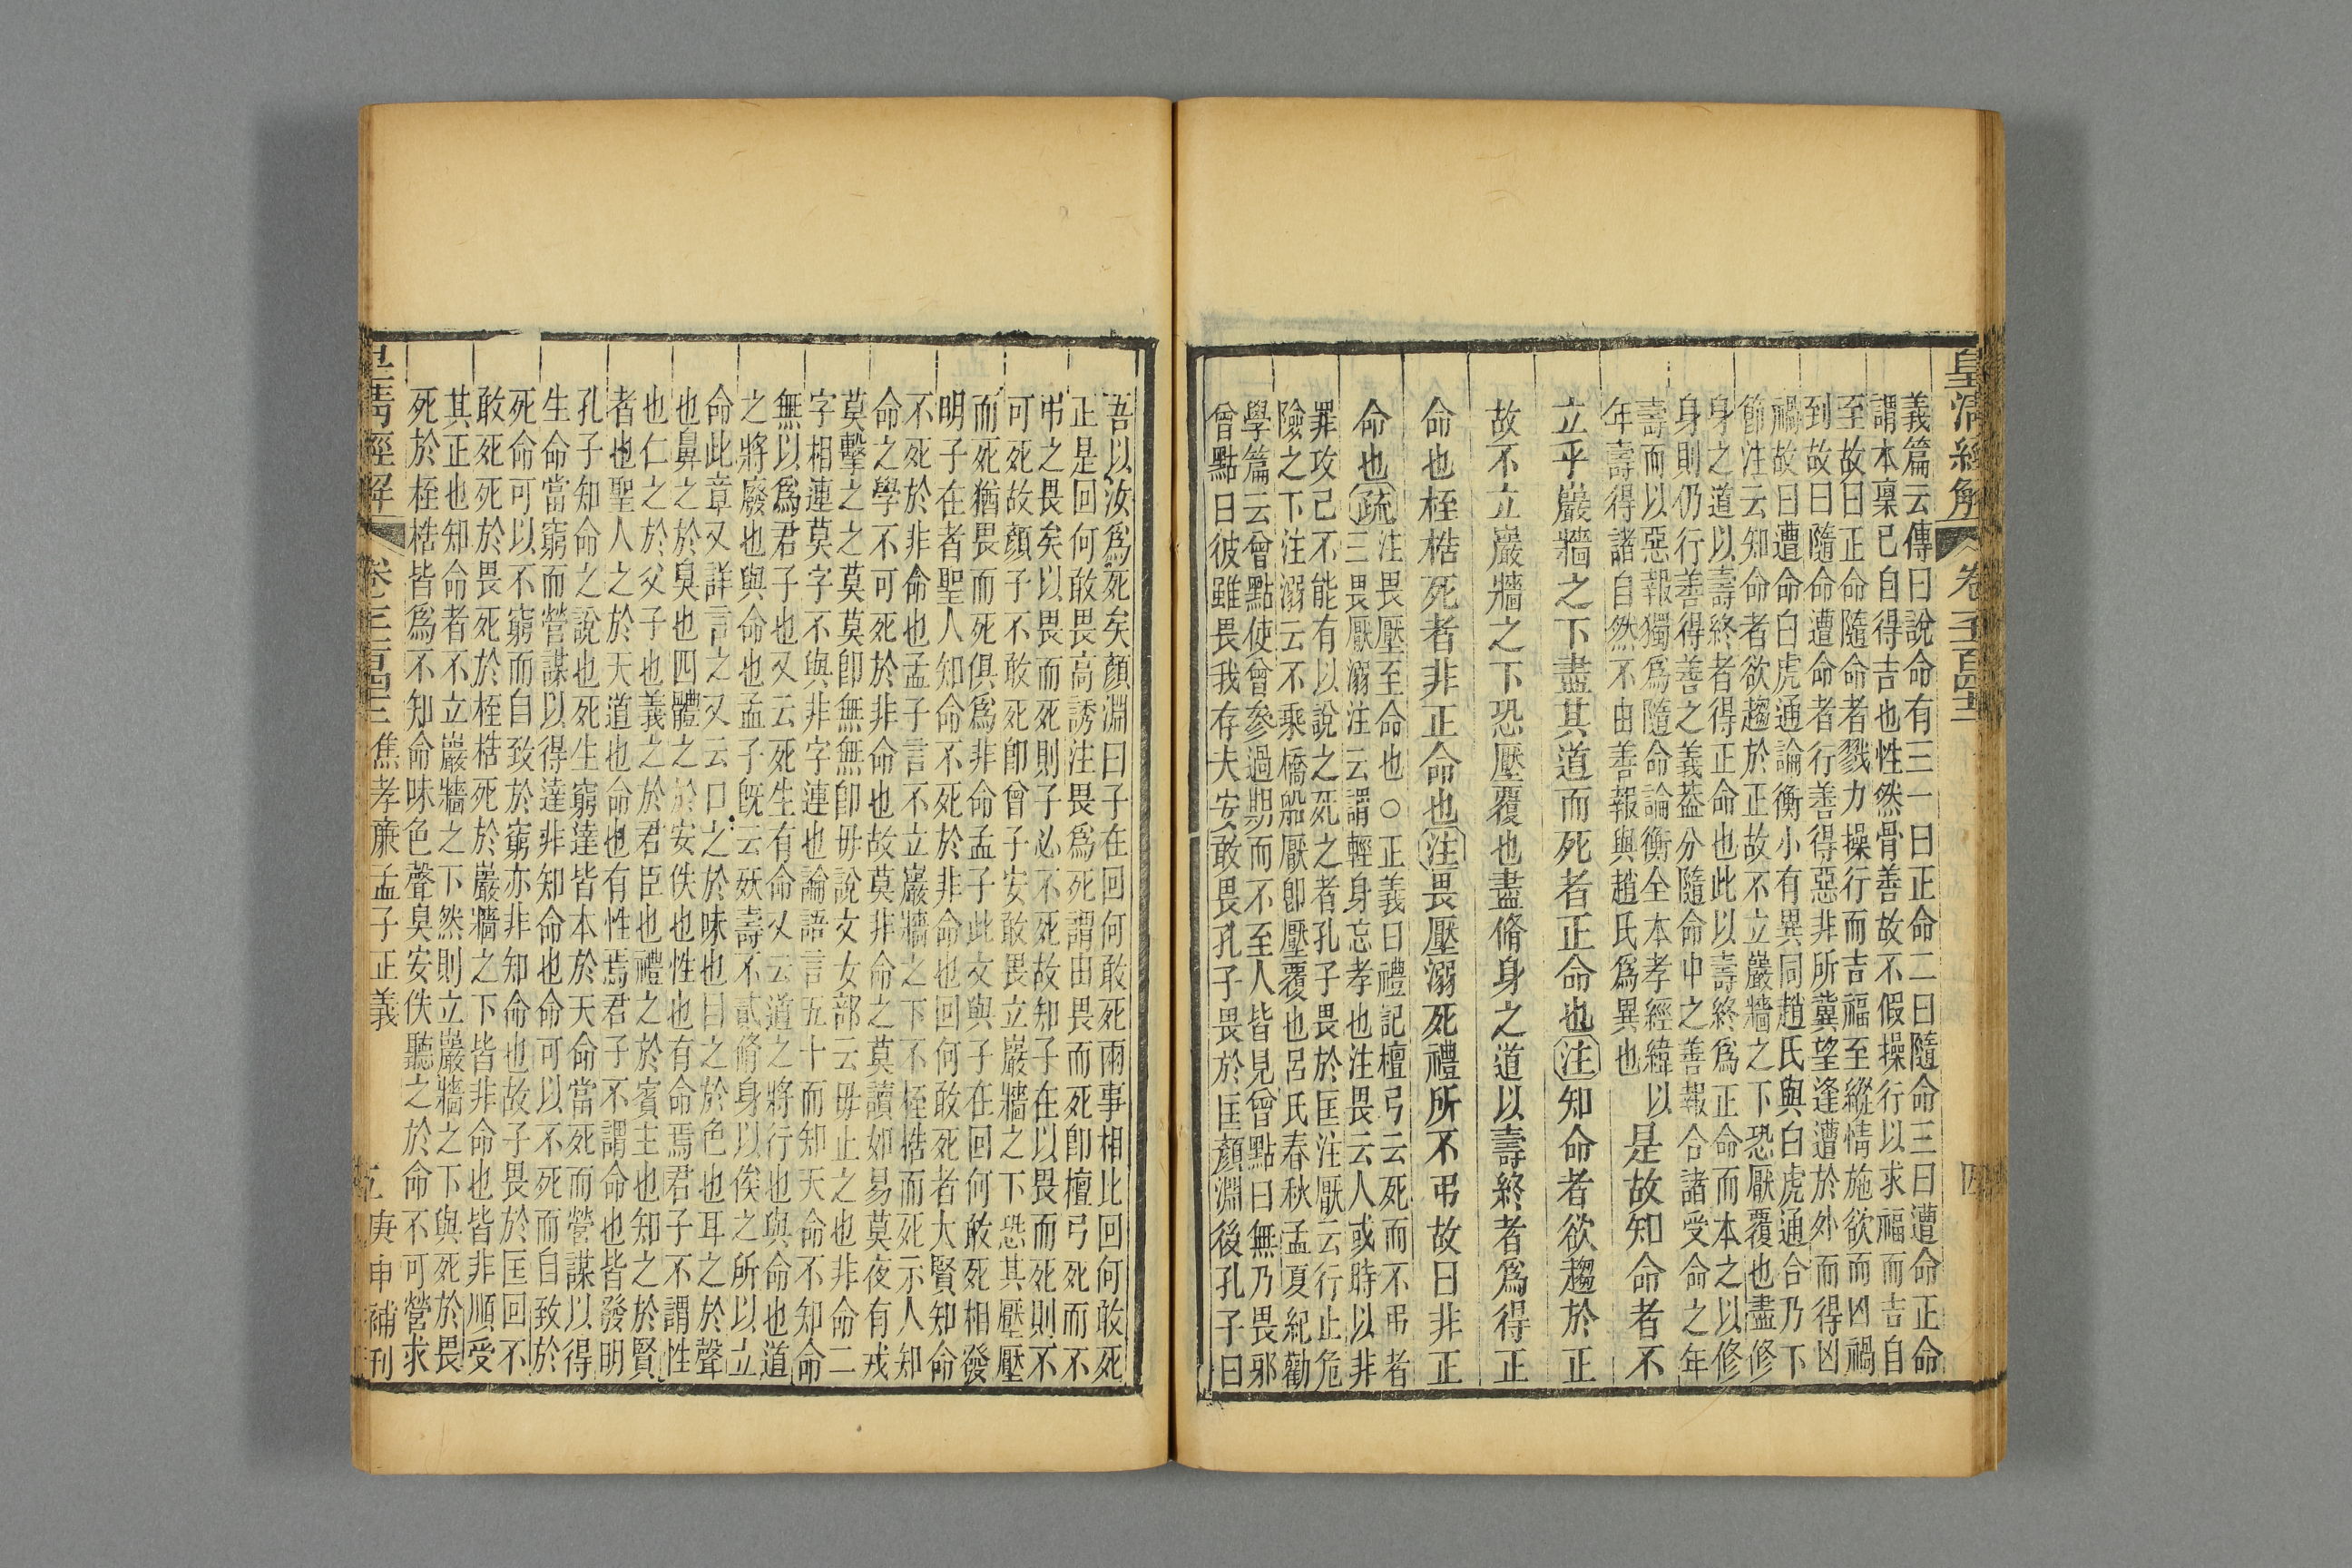 皇清經解 卷一千一百四十二 四
義篇云傳曰說命有三一曰正命二曰隨命三曰遭命正命
謂本稟已自得吉也性然骨善故不假操行以求福而吉自
至故曰正命隨命者戮力操行而吉福至縱情施欲而凶禍
到故曰隨命遭命者行善得惡非所冀望逢遭於外而得凶
禍故曰遭命白虎通論衡小有異同趙氏與白虎通合乃下
節注云知命者欲趨於正故不立巖牆之下恐厭覆也盡修
身之道以壽終者得正命也此以壽終為正命而本之以修
身則仍行善得善之義葢分隨命中之善報合諸受命之年
壽而以惡報獨爲隨命論衡全本孝經緯以
年壽得諸自然不由善報與趙氏爲異也
是故知命者不
立乎巖牆之下盡其道而死者正命也注知命者欲趨於正
故不立巖牆之下恐壓覆也盡脩身之道以壽終者爲得正
命也桎梏死者非正命也注畏壓溺死禮所不弔故曰非正
命也疏
注畏壓至命也○正義曰禮記檀弓云死而不弔者
三畏厭溺注云謂輕身忘孝也注畏云人或時以非
罪攻己不能有以說之死之者孔子畏於匡注厭云行止危
險之下注溺云不乘橋船厭卽壓覆也呂氏春秋孟夏紀勸
學篇云曾點使曾參過期而不至人皆見曾點曰無乃畏邪
曾點曰彼雖畏我存夫安敢畏孔子畏於匡顏淵後孔子曰
吾以汝爲死矣顏淵曰子在回何敢死兩事相比回何敢死
正是回何敢畏高誘注畏爲死謂由畏而死卽檀弓死而不
弔之畏矣以畏而死則子必不死故知子在以畏而死則不
可死故顏子不敢死卽曾子安敢畏立巖牆之下恐其壓壓
而死猶畏而死俱爲非命孟子此文與子在回何敢死相發
明子在者聖人知命不死於非命也回何敢死者大賢知命
不死於非命也孟子言不立巖牆之下不桎梏而死示人知
命之學不可死於非命也故莫非命之莫讀如易莫夜有戎
莫擊之之莫莫卽無無卽毋說文女部云毋止之也非命二
字相連莫字不與非字連也論語言五十而知天命不知命
無以爲君子也又云死生有命又云道之將行也與命也道
之將廢也與命也孟子旣云殀壽不貳脩身以俟之所以立
命此章又詳言之又云口之於味也目之於色也耳之於聲
也鼻之於臭也四體之於安佚也性也有命焉君子不謂性
也仁之於父子也義之於君臣也禮之於賓主也知之於賢
者也聖人之於天道也命也有性焉君子不謂命也皆發明
孔子知命之說也死生窮達皆本於天命當死而營謀以得
生命當窮而營謀以得達非知命也命可以不死而自致於
死命可以不窮而自致於窮亦非知命也故子畏於匡回不
敢死死於畏死於桎梏死於巖牆之下皆非命也皆非順受
其正也知命者不立巖牆之下然則立巖牆之下與死於畏
死於桎梏皆爲不知命味色聲臭安佚聽之於命不可營求
皇清經解 卷一千一百四十三 焦孝廉孟子正義 庚申補刊